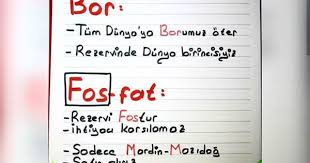 Bor:
- Tüm Dünya'ya Borumuz öter
- Rezervinde Dünya birincisiyiz
Fos-fat:
- Rezervi Fostur
- ihtiyacı karşılamaz
- Sadece Mardin-Mazıdağ